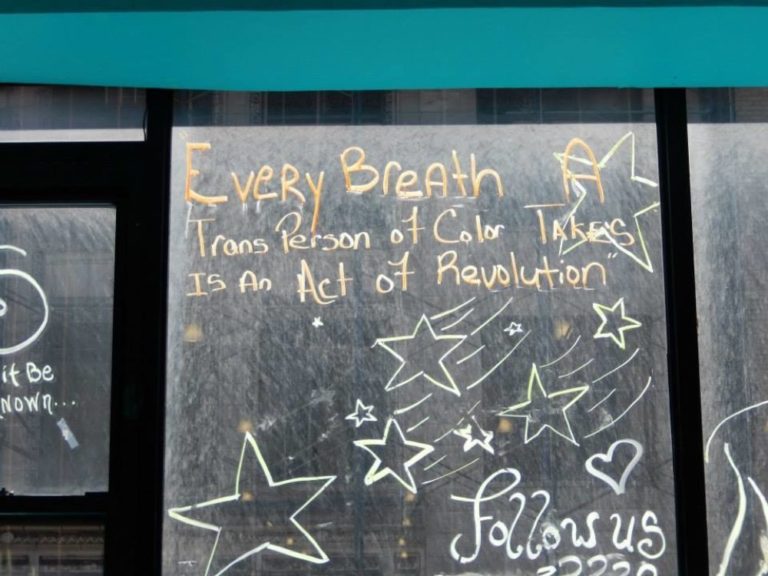 Every Breath A
Trans Person of Color Takes
Is An Act of Revolution"
it Be
nown...
Follow us